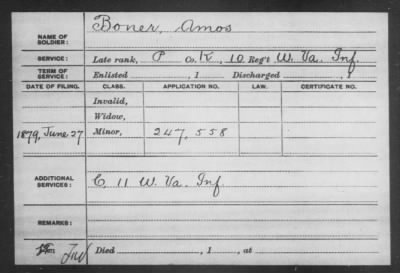 NAME OF SOLDIER: Boner, Amos
SERVICE: Late rank, P Co. K, 10 Reg't W. Va. Inf.
TERM OF SERVICE: Enlisted , 1 Discharged , 1
DATE OF FILING. CLASS. APPLICATION NO. LAW. CERTIFICATE NO.
Invalid,
Widow,
1879, June 27 Minor, 247,558
ADDITIONAL SERVICES: C 11 W. Va. Inf.
REMARKS:
Died , 1 , at